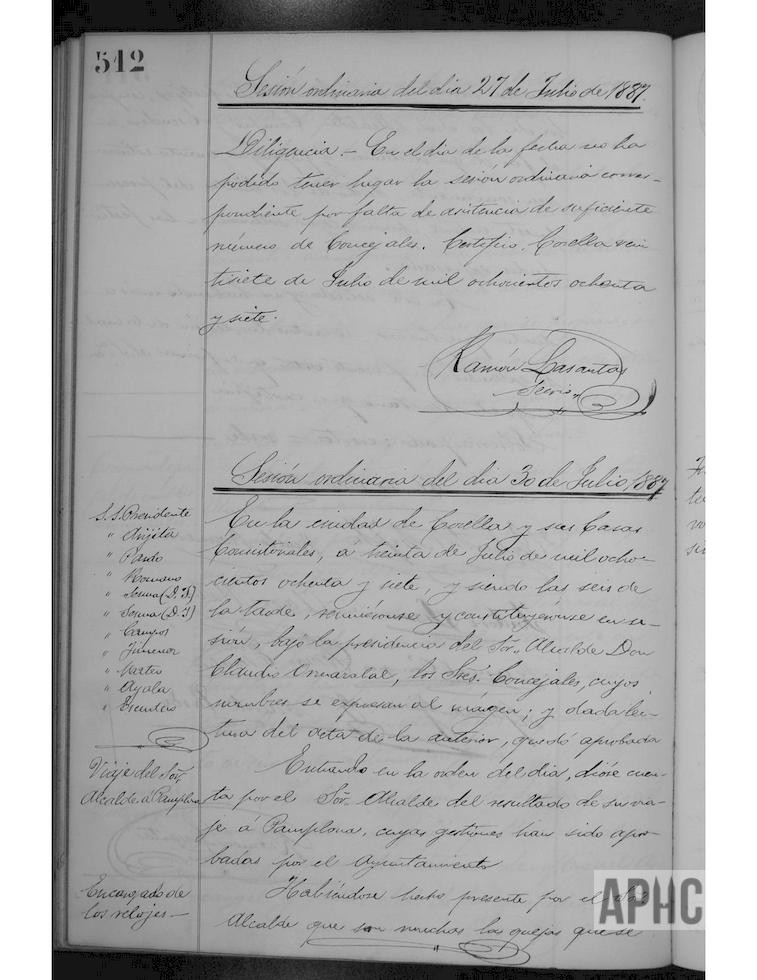 512
Sesión ordinaria del dia 27 de Julio de 1887.
Diligencia.- En el dia de la fecha no ha
podido tener lugar la sesión ordinaria corres-
pondiente por falta de asistencia de suficiente
número de Concejales. Certifico, Corella vein
tisiete de Julio de mil ochocientos ochenta
y siete.
Ramón Lasantas
Secrio
Sesión ordinaria del dia 30 de Julio 1887
S.S. Presidente
" Arijita
" Pardo
" Romano
" Sesma (D. J.)
" Sesma (D. J)
" Campos
" Jimenez
" Mateo
" Ayala
" Escudero
En la ciudad de Corella y sus Casas
Consistoriales, á treinta de Julio de mil ocho-
cientos ochenta y siete, y siendo las seis de
la tarde, reuniéronse y constituyéronse en se-
sión, bajo la presidencia del Sor. Alcalde Don
Claudio los Sres. Concejales, cuyos
nombres se expresan al márgen; y dada lec-
tura del acta de la anterior, quedó aprobada
Viaje del Sor.
Alcalde á Pamplona
Entrando en la orden del dia, dióse cuen-
ta por el Sor. Alcalde del resultado de su via-
je á Pamplona, cuyas gestiones han sido apro-
badas por el Ayuntamiento
Encargado de
los relojes-
Habiéndose hecho presente por el Sor.
Alcalde que son muchas las quejas que se
APHC